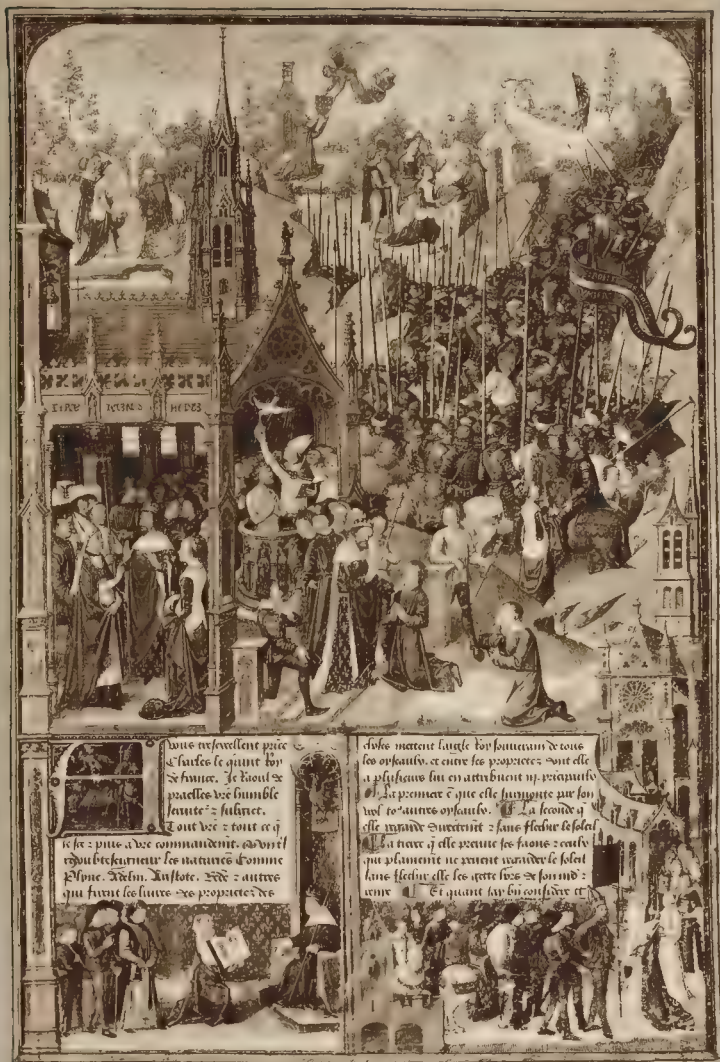 vous tresexcellent price
Charles le quint Roy
de france. Je Raoul de
praelles vre humble
seruite z subgiet.
Tout vre z tout ce q
z puis a vre commandemt.
redoubte seigneur les naturies Comme
Plyne. Adelin. Aristote. Bede z autres
qui firent les liures des proprietez des
choses mettent laigle Roy souuerain de tous
les oyseaulx. et entre ses proprietez dont elle
a plusieurs lui en attribuent iij. pricipaulx
La premiere ē que elle surmonte par son
vol to9 autres oyseaulx. ¶ La seconde q
elle regarde directemt z sans flechir le soleil
¶ La tierce q elle preuue ses faons z ceulx
qui plainemt ne peuent regarder le soleil
sans flechir elle les gette hors de son nid z
¶ Et quant iay bn considere